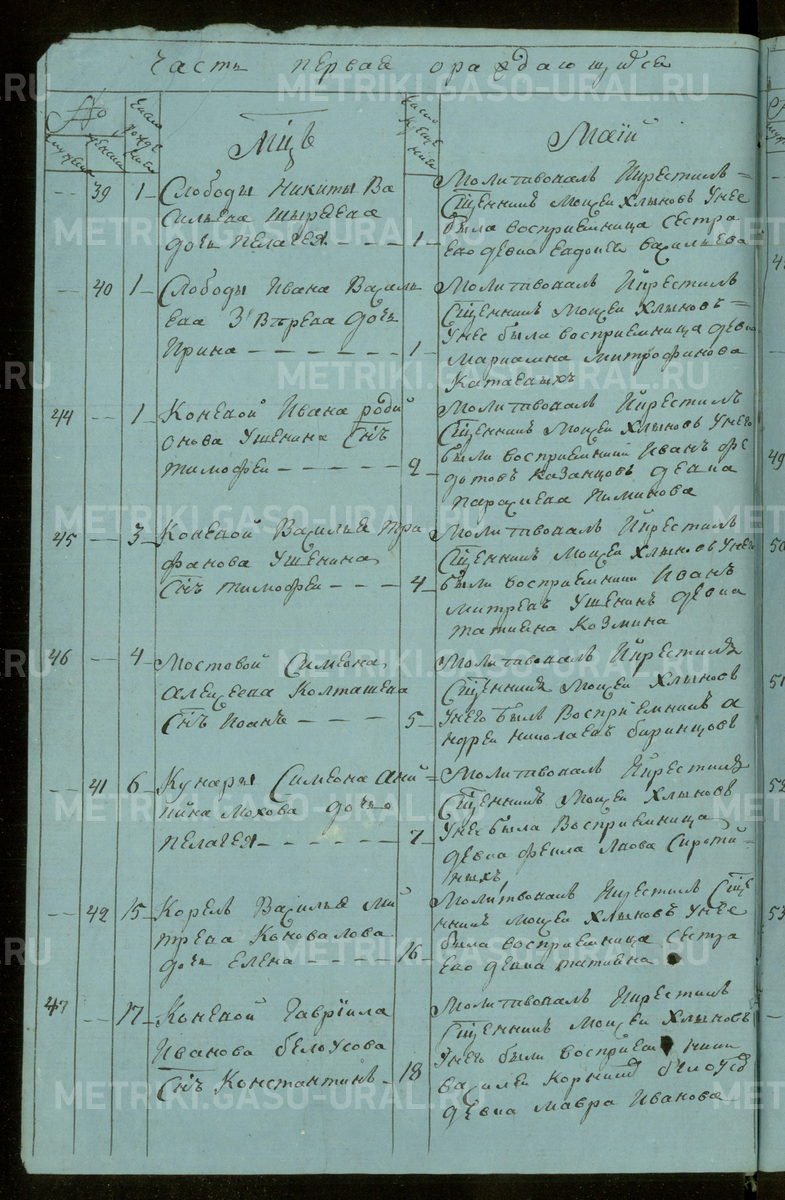 Часть первая о раждающихся
№
Число рожде ния
Мцъ
Число креще ния
Маїй
39 1 Слободы Никиты Ва
сильева Шырыева
дочь Пелагея 1
Молитвовалъ и крестилъ
Сщенникъ Моисей Хлыновъ у нее
была восприемница сестра
ево девка Евдокия Васильева
40 1 Слободы Ивана Василь
ева Зверева дочь
Ирина 1
Молитвовалъ и крестилъ
Сщенникъ Моисей Хлыновъ
у нее была восприемница девка
Мариамна Митрофанова
Катаевыхъ
44 1 Коневой Ивана Роди
онова Ушенина Снъ
Тимофей 2
Молитвовалъ и крестилъ
Сщенникъ Моисей Хлыновъ у нево
были восприемники Иванъ Фе
дотовъ Казанцовъ девка
Параскева Пиминова
45 3 Коневой Василья Тра
фанова Ушенина
Снъ Тимофей 4
Молитвовалъ и крестилъ
Сщенникъ Моисей Хлыновъ у нево
были восприемники Иванъ
Митревъ Ушенинъ девка
Татияна Козмина
46 4 Мостовой Симеона
Алексеева Колташева
Снъ Иоанъ 5
Молитвовалъ и крестилъ
Сщенникъ Моисей Хлыновъ
у нево былъ восприемникъ А
ндрей Николаевъ
41 6 Кунары Симеона Ани
кина Мохова дочь
Пелагея 7
Молитвовалъ и крестилъ
Сщенникъ Моисей Хлыновъ
у нее была восприемница
девка Фекла Лвова Сироти
ныхъ
42 15 Корелъ Василья Ми
трева Коновалова
дочь Елена 16
Молитвовалъ и крестилъ Сще
нникъ Моисей Хлыновъ у нее
была восприемница сестра
ево девка Татияна
47 17 Коневой Гавриила
Иванова Белоусова
Снъ Константинъ 18
Молитвовалъ и крестилъ
Сщенникъ Моисей Хлыновъ
у нево были восприемники
Василей Корнилов Белоусов
девка Мавра Иванова
METRIKI.GASO-URAL.RU